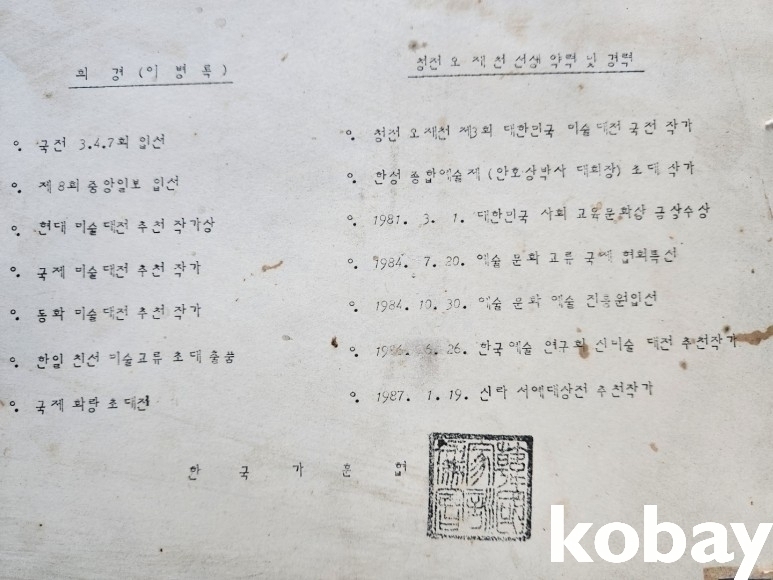 희 경 (이 병 록)
o. 국전 3.4.7회 입선
o. 제 8회 중앙일보 입선
o. 현대 미술대전 추천 작가상
o. 국제 미술대전 추천 작가
o. 동화 미술대전 추천 작가
o. 한일 친선 미술교류 초대 출품
o. 국제 화랑 초대전
청전 오 재천 선생 약력 및 경력
o. 청전 오재천 제3회 대한민국 미술대전 국전 작가
o. 한성 종합예술제 (안호상박사 대회장) 초대 작가
o. 1981. 3. 1. 대한민국 사회 교육문화상 금상수상
o. 1984. 7. 20. 예술 문화 교류 국제 협회특선
o. 1984. 10. 30. 예술 문화 예술 진흥원입선
o. 6. 26. 한국예술 연구회 신미술 대전 추천작가
o. 1987. 1. 19. 신라 서예대상전 추천작가
한 국 가 훈 협
kobay